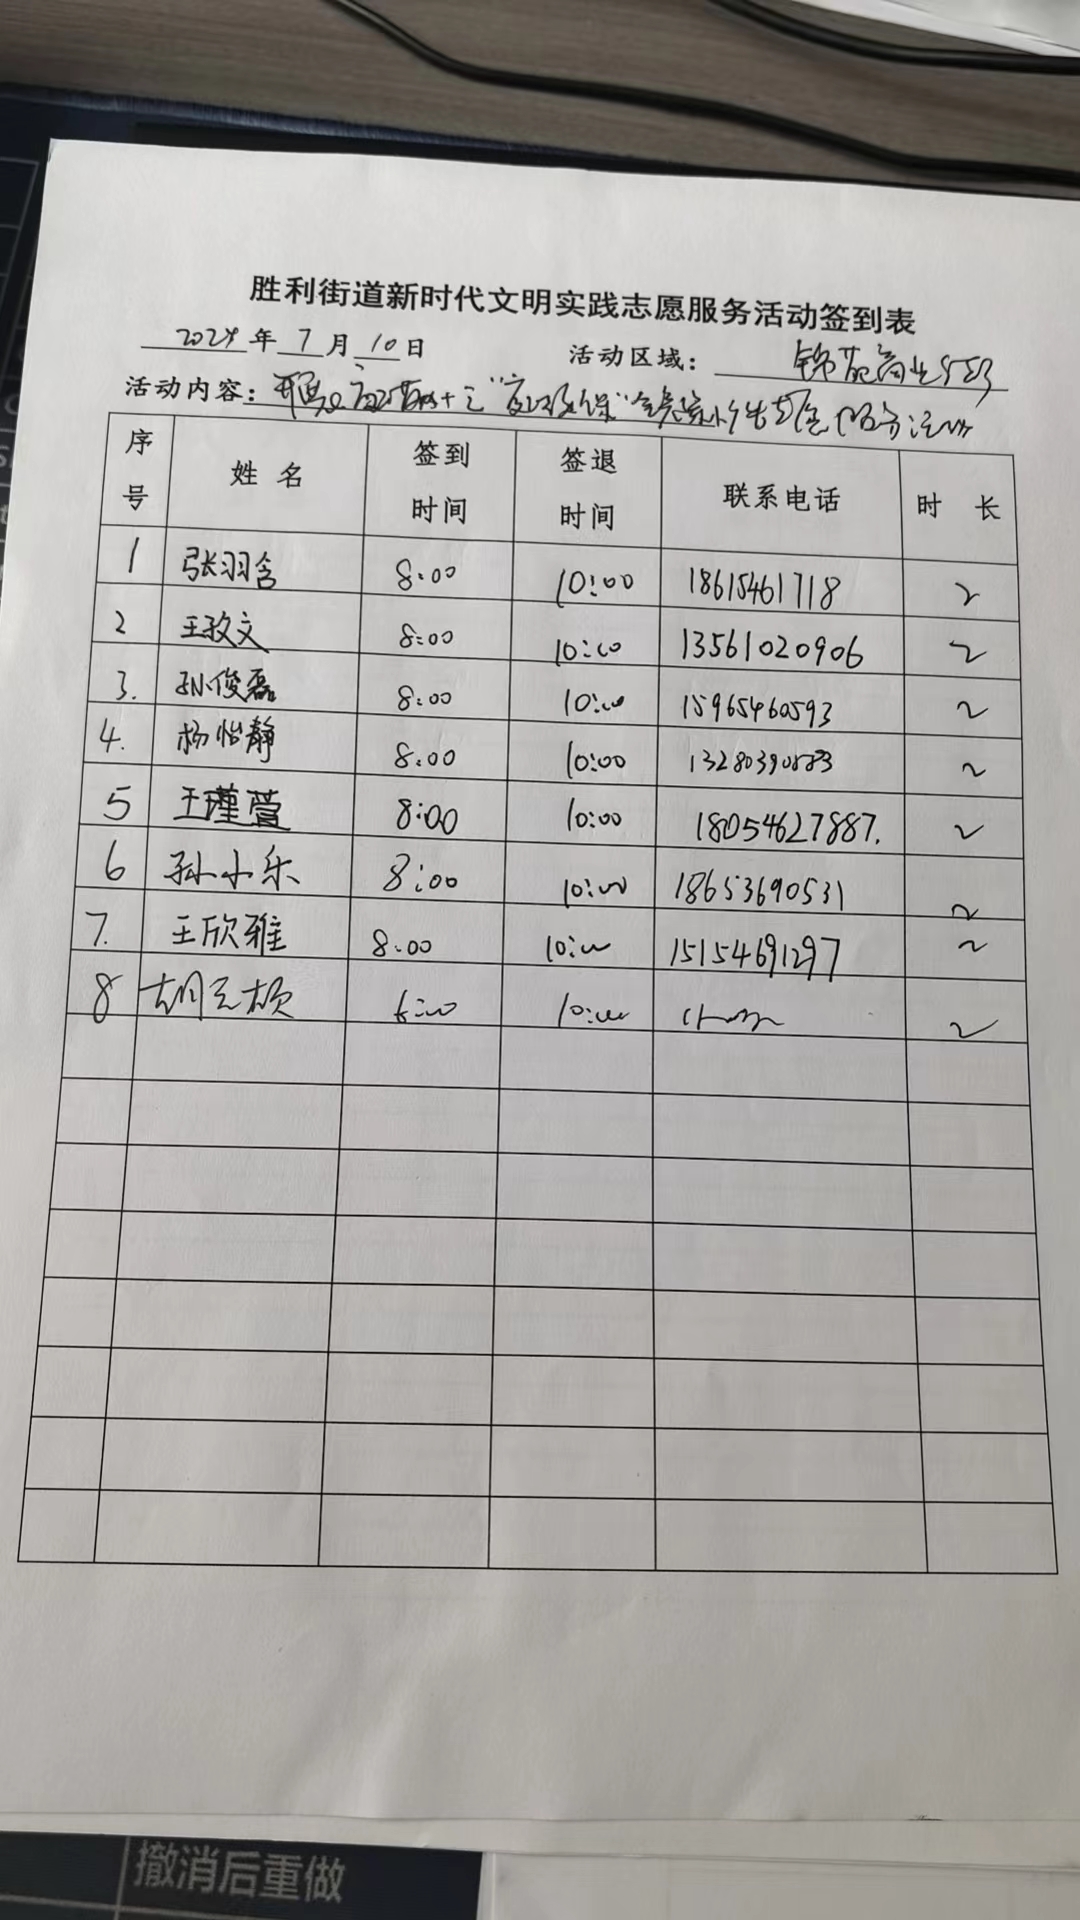 胜利街道新时代文明实践志愿服务活动签到表
2024年7月10日 活动区域：锦苑商业
活动内容：
序号 姓名 签到时间 签退时间 联系电话 时长
1 张羽含 8:00 10:00 18615461718 2
2 王孜文 8:00 10:00 13561020906 2
3. 孙俊磊 8:00 10:00 15965460593 2
4. 杨怡静 8:00 10:00 2
5 王瑾萱 8:00 10:00 18054627887. 2
6 孙小乐 8:00 10:00 18653690531 2
7. 王欣雅 8:00 10:00 15154691297 2
8 10:00 2
撤消后重做